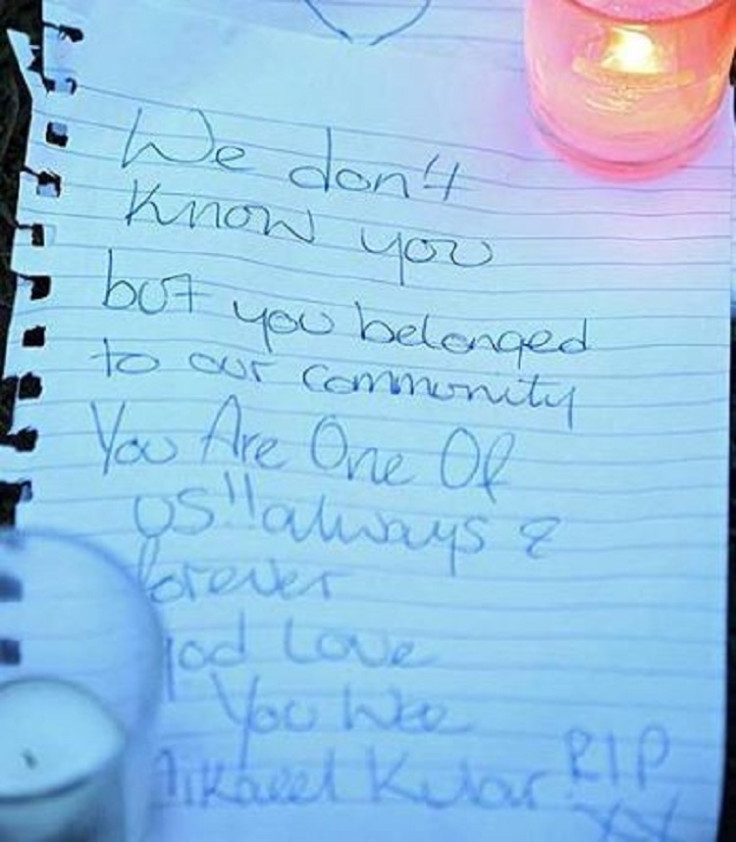 We don't
Know you
but you belonged
to our community
You Are One Of
us!! always &
forever
God Love
You Wee
Mikaeel Kular RIP
xx